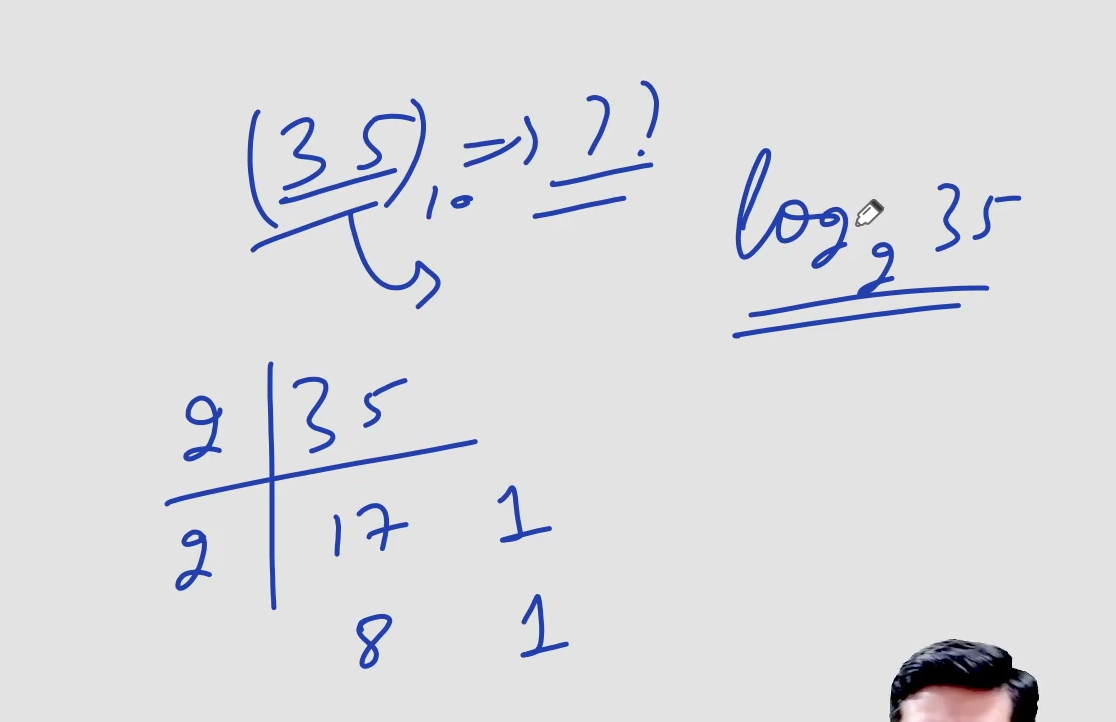 (35)₁₀ => ??
log₂ 35
2 | 35
2 | 17 1
8 1